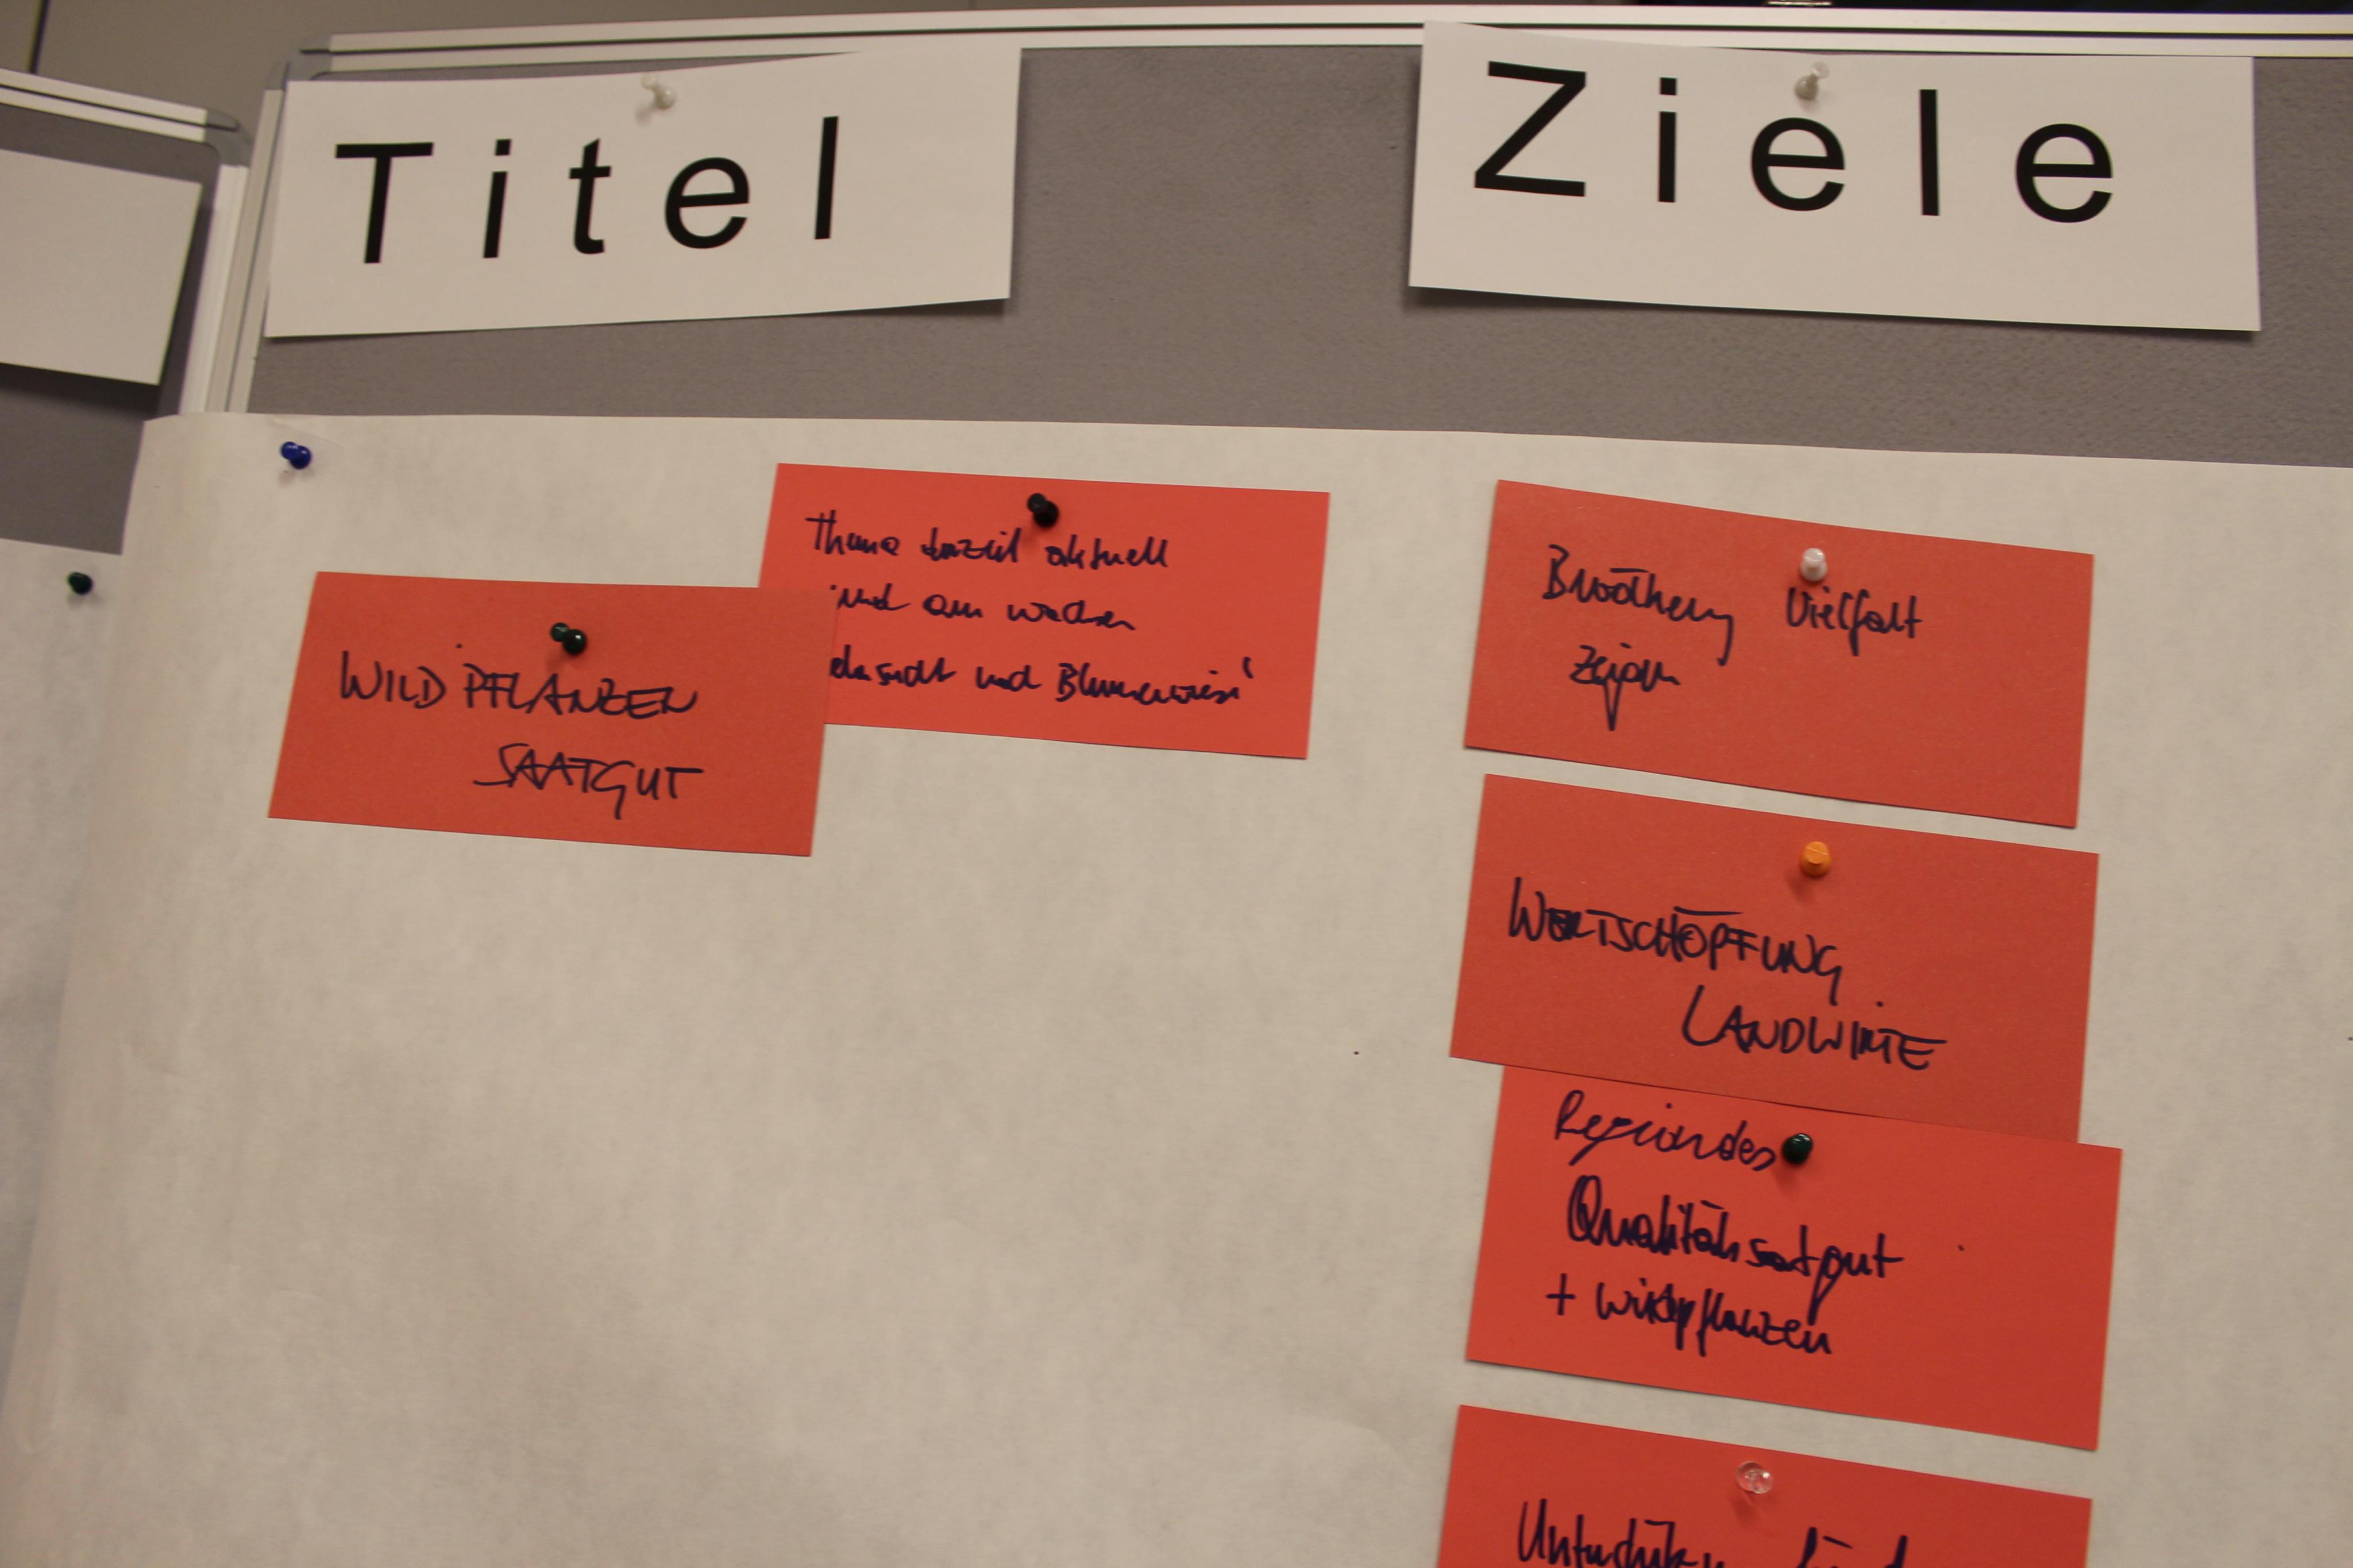 Titel
Ziele
Thema derzeit aktuell
und am wachsen
und Blumenwiese'
WILDPFLANZEN
SAATGUT
Vielfalt
zeigen
WERTSCHÖPFUNG
LANDWIRTE
Regionales
Qualitätssaatgut
+ Wildpflanzen